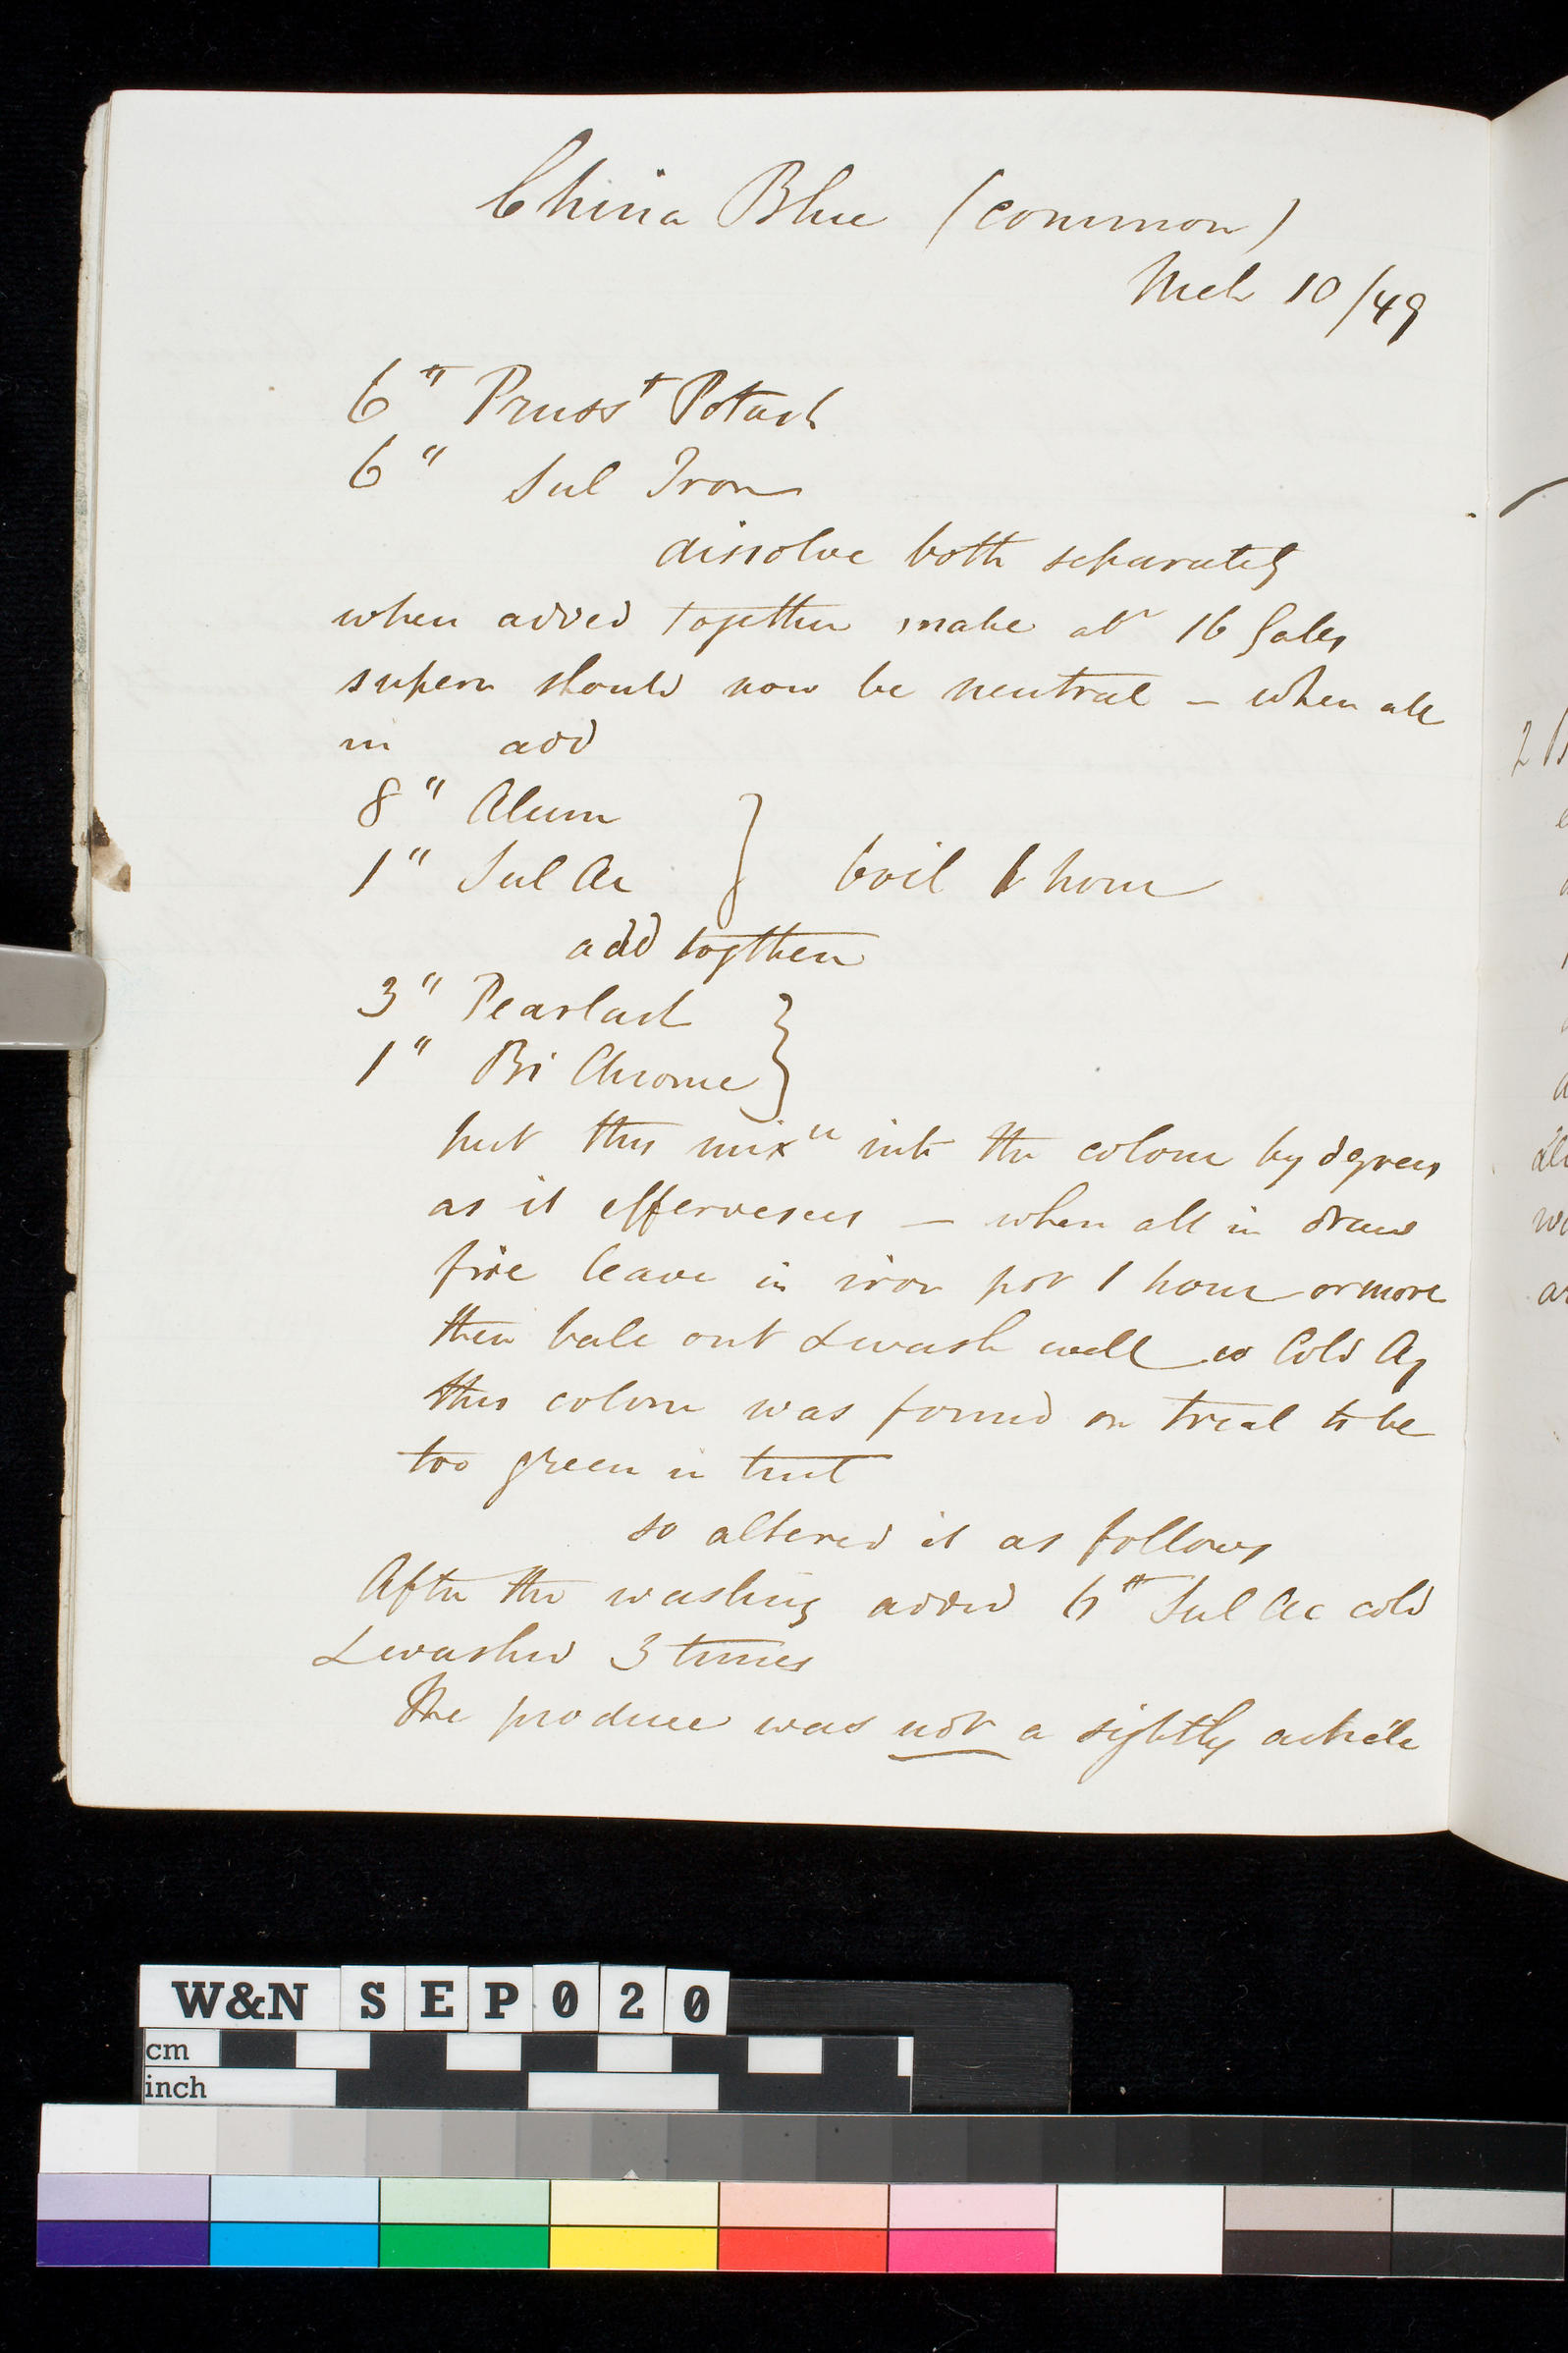 China Blue (common)
Mch 10/49
6" Pruss^t Potash
6" Sul Iron
dissolve both separately
when added together make abt 16 Galls
supern should now be neutral – when all
in add
8" Alum
1" Sul Ac } boil 1 hour
add togther
3" Pearlash
1" Bi Chrome }
put this mix^re into the colour by degrees
as it effervesces – when all in draw
fire leave in iron pot 1 hour or more
then bale out & wash well w Cold Aq
this colour was found on trial to be
too green in tint
so altered it as follows
After the washing added 6" Sul Ac cold
& washed 3 times
The produce was not a sightly article
2
W&N SEP020
cm
inch